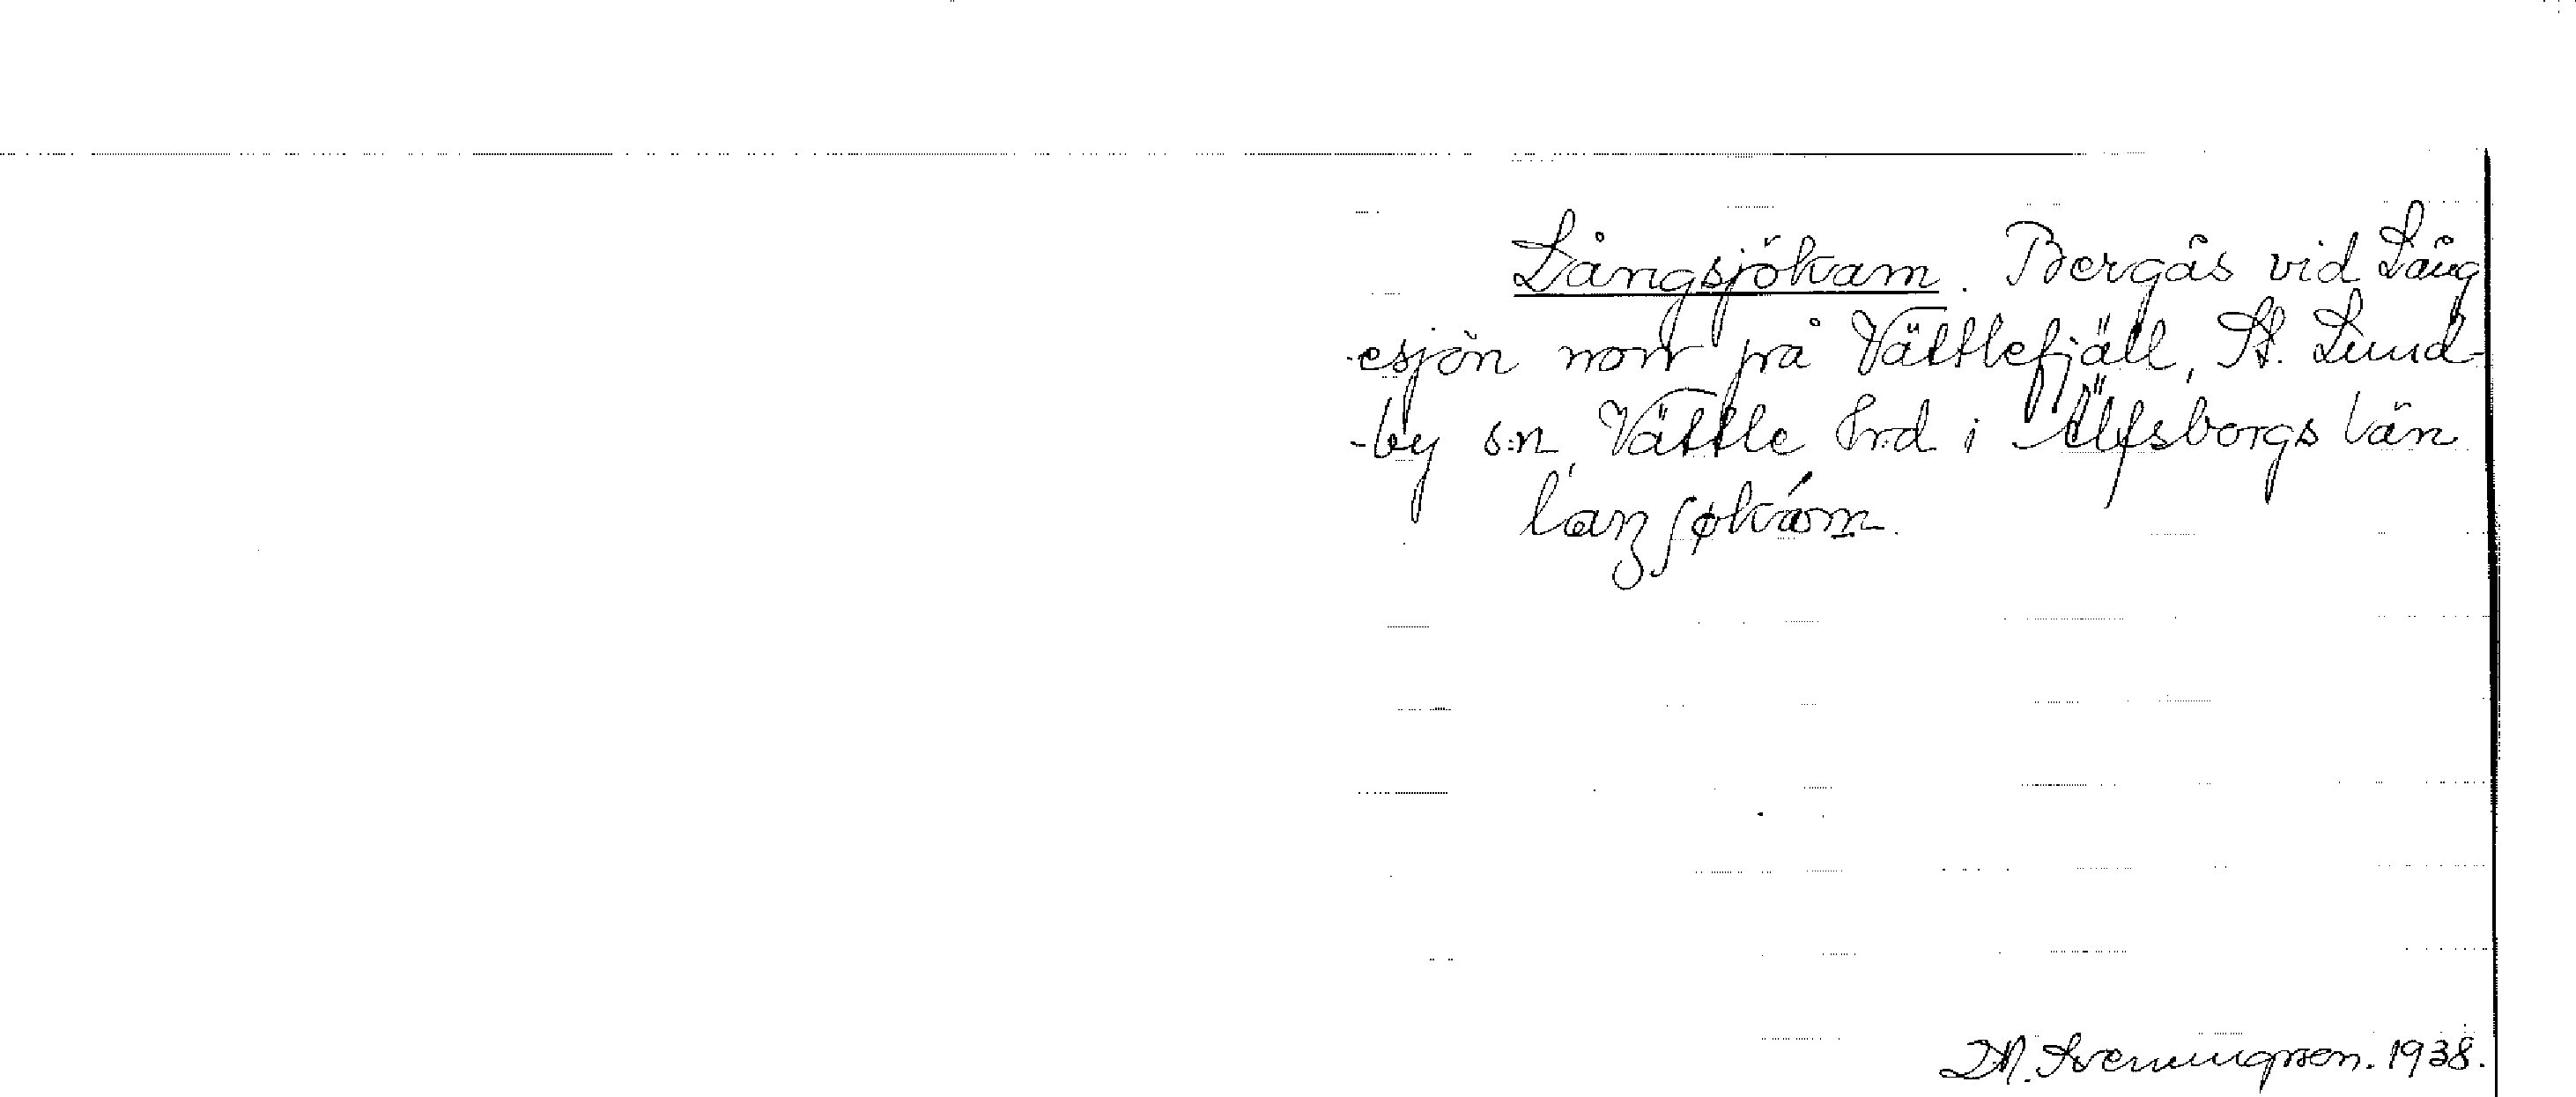 Långsjökam. Bergås vid Lång
-esjön norr på Vättlefjäll, St. Lund-
-by s:n, Vättle hrd i Älfsborgs län.
M. Svenungsson. 1938.